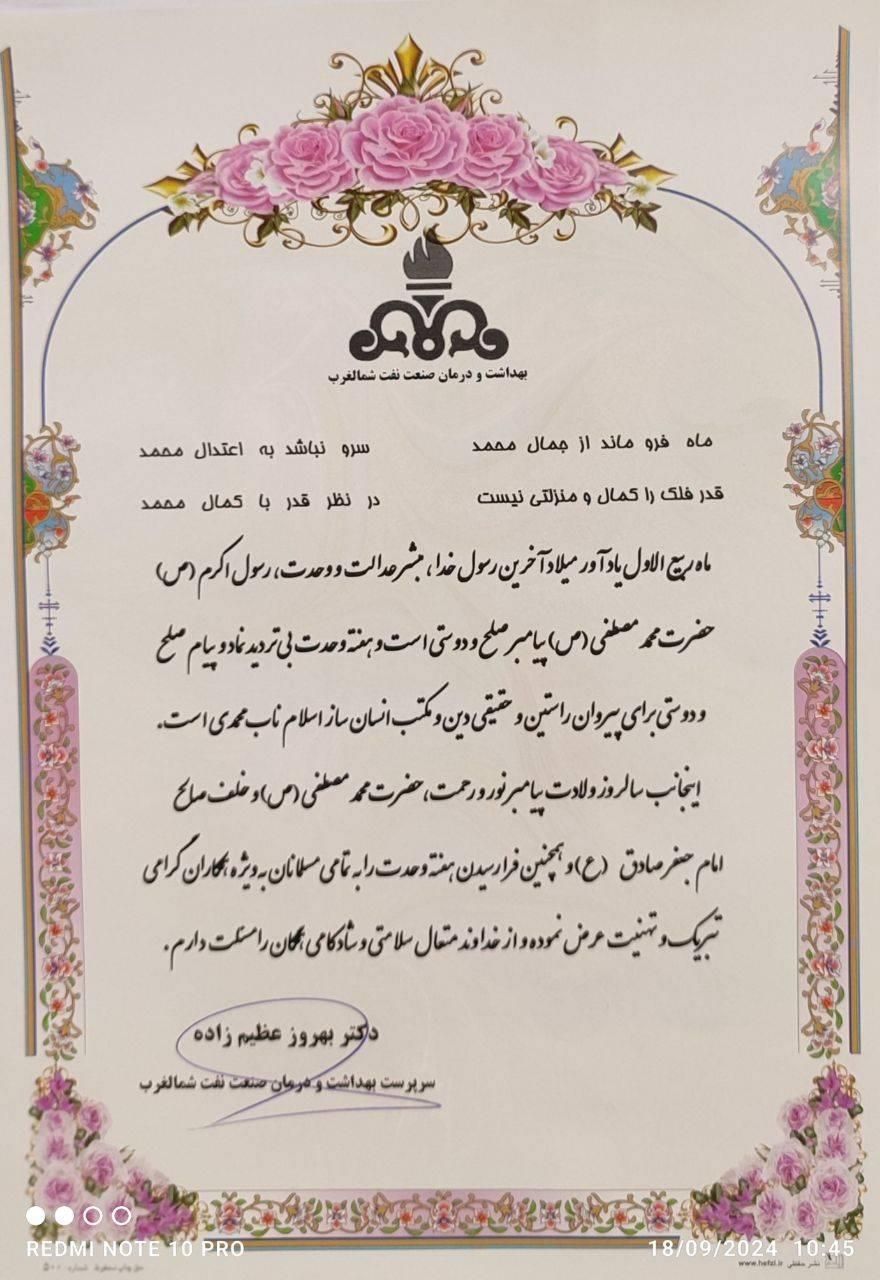 بهداشت و درمان صنعت نفت شمالغرب
ماه فرو ماند از جمال محمد سرو نباشد به اعتدال محمد
قدر فلک را کمال و منزلتی نیست در نظر قدر با کمال محمد
ماه ربیع الاول یادآور میلاد آخرین رسول خدا، مبشر عدالت و وحدت، رسول اکرم (ص)
حضرت محمد مصطفی (ص) پیامبر صلح و دوستی است و هفته وحدت بی تردید نماد و پیام صلح
و دوستی برای پیروان راستین و حقیقی دین و مکتب انسان ساز اسلام ناب محمدی است.
اینجانب سالروز ولادت پیامبر نور و رحمت، حضرت محمد مصطفی (ص) و خلف صالح
امام جعفر صادق (ع) و همچنین فرارسیدن هفته وحدت را به تمامی مسلمانان به ویژه همکاران گرامی
تبریک و تهنیت عرض نموده و از خداوند متعال سلامتی و شادکامی همگان را مسئلت دارم.
دکتر بهروز عظیم زاده
سرپرست بهداشت و درمان صنعت نفت شمالغرب
REDMI NOTE 10 PRO
18/09/2024 10:45
www.hefzi.ir نشر حفظی